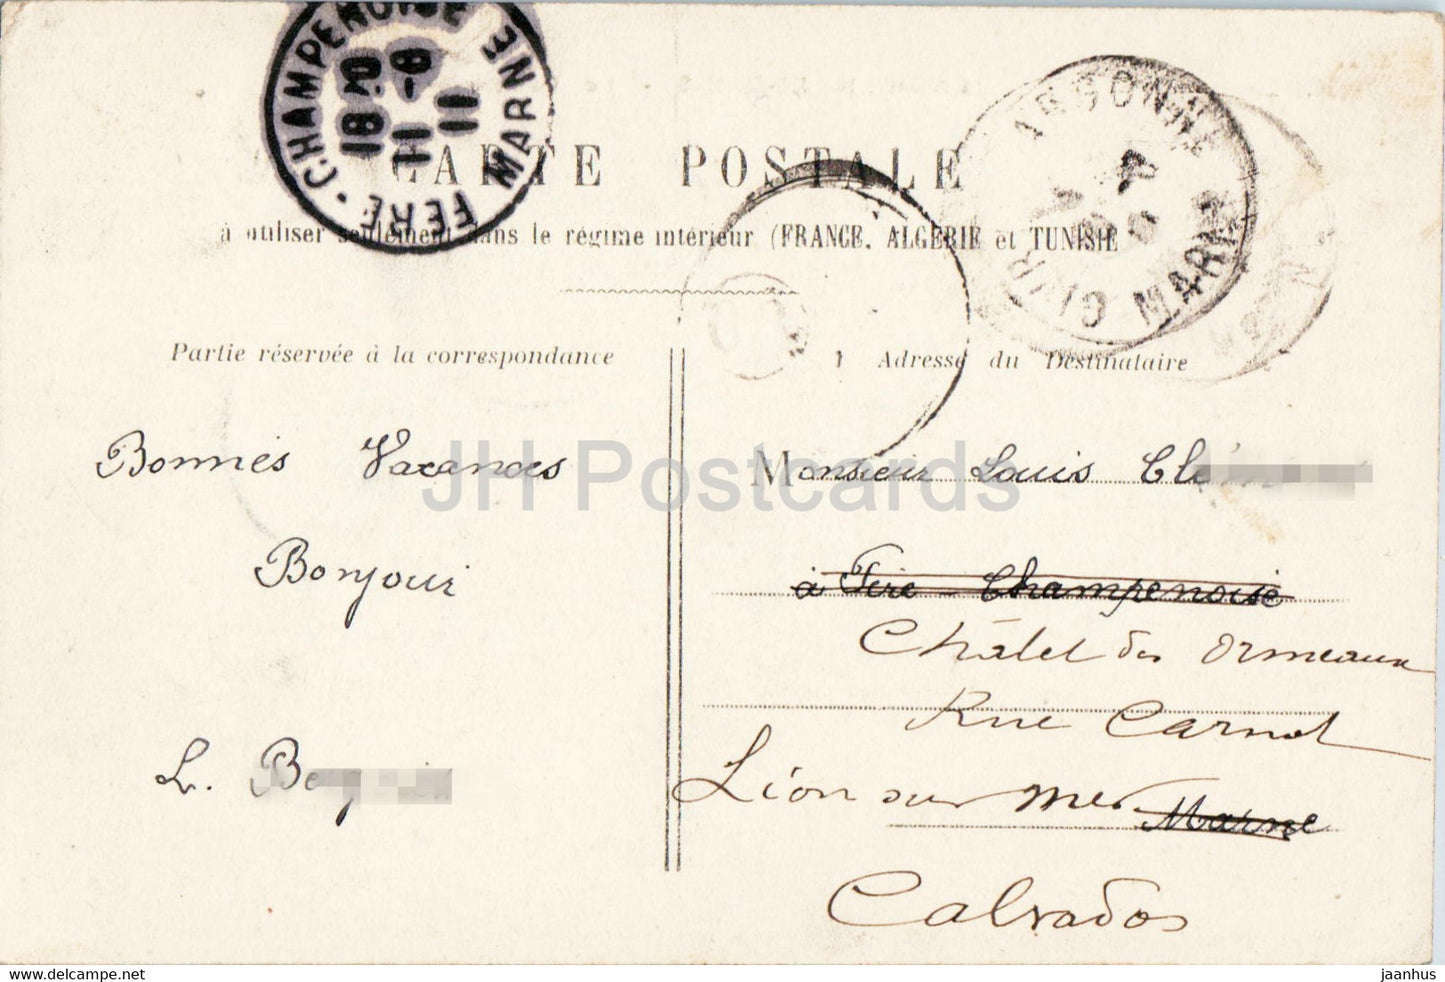 FERE-CHAMPENOISE MARNE
18·20
11-8
11
ARGONNE
MARNE
CARTE POSTALE
à utiliser seulement dans le régime intérieur (FRANCE, ALGÉRIE et TUNISIE
Partie réservée à la correspondance
Adresse du Destinataire
Bonnes Vacances
Bonjour
L. Be
Monsieur Louis Clé
à Fère-Champenoise
Châlet des Ormeaux
Rue Carnot
Lion sur mer Marne
Calvados
JH Postcards
https://www.delcampe.net
jaanhus